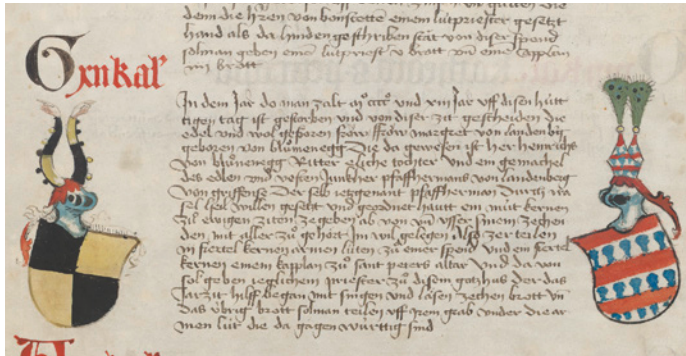 dem die hren von bonstetten einem lutpriester gesetzt
hand als da hinden geschriben stat von diser spend
solman geben einē lutpriestr brott vñ eine capplan
brott
In dem Jar do man zalt mº cccc und xiii Jar uff disen hütt
tigen tag ist gestorben und von diser zit gescheiden die
edel und wol geboren frow frow margret von landenbg
geboren von blůmenegg Die da gewesen ist her heinrichs
von blůmenegg Ritter eliche tochter Und ein gemachel
des edlen und vesten Junkher pfaffhermans von landenberg
von griffense Der selb yetzgenant pfaffherman durch ira
sel heil willen gesetzt und geordnet hautt ein müt kernen
zil ewigen ziten ze geben ab von usser sinem zechen
den mit aller zů gehört Im wil gelegen Also zerteilen
in fiertel kernen armen lüten zů einer spend Und ein fiertel
kernen einem kapplan zů sant peters altar Und da von
sol geben yeglichem priester zů disem gotzhus der das
Jarzit hilff began mit singen und läsen zechen brott vñ
das übrig brott solman teilen uff irem grab under die ar
men lüt die da gagen württig sind